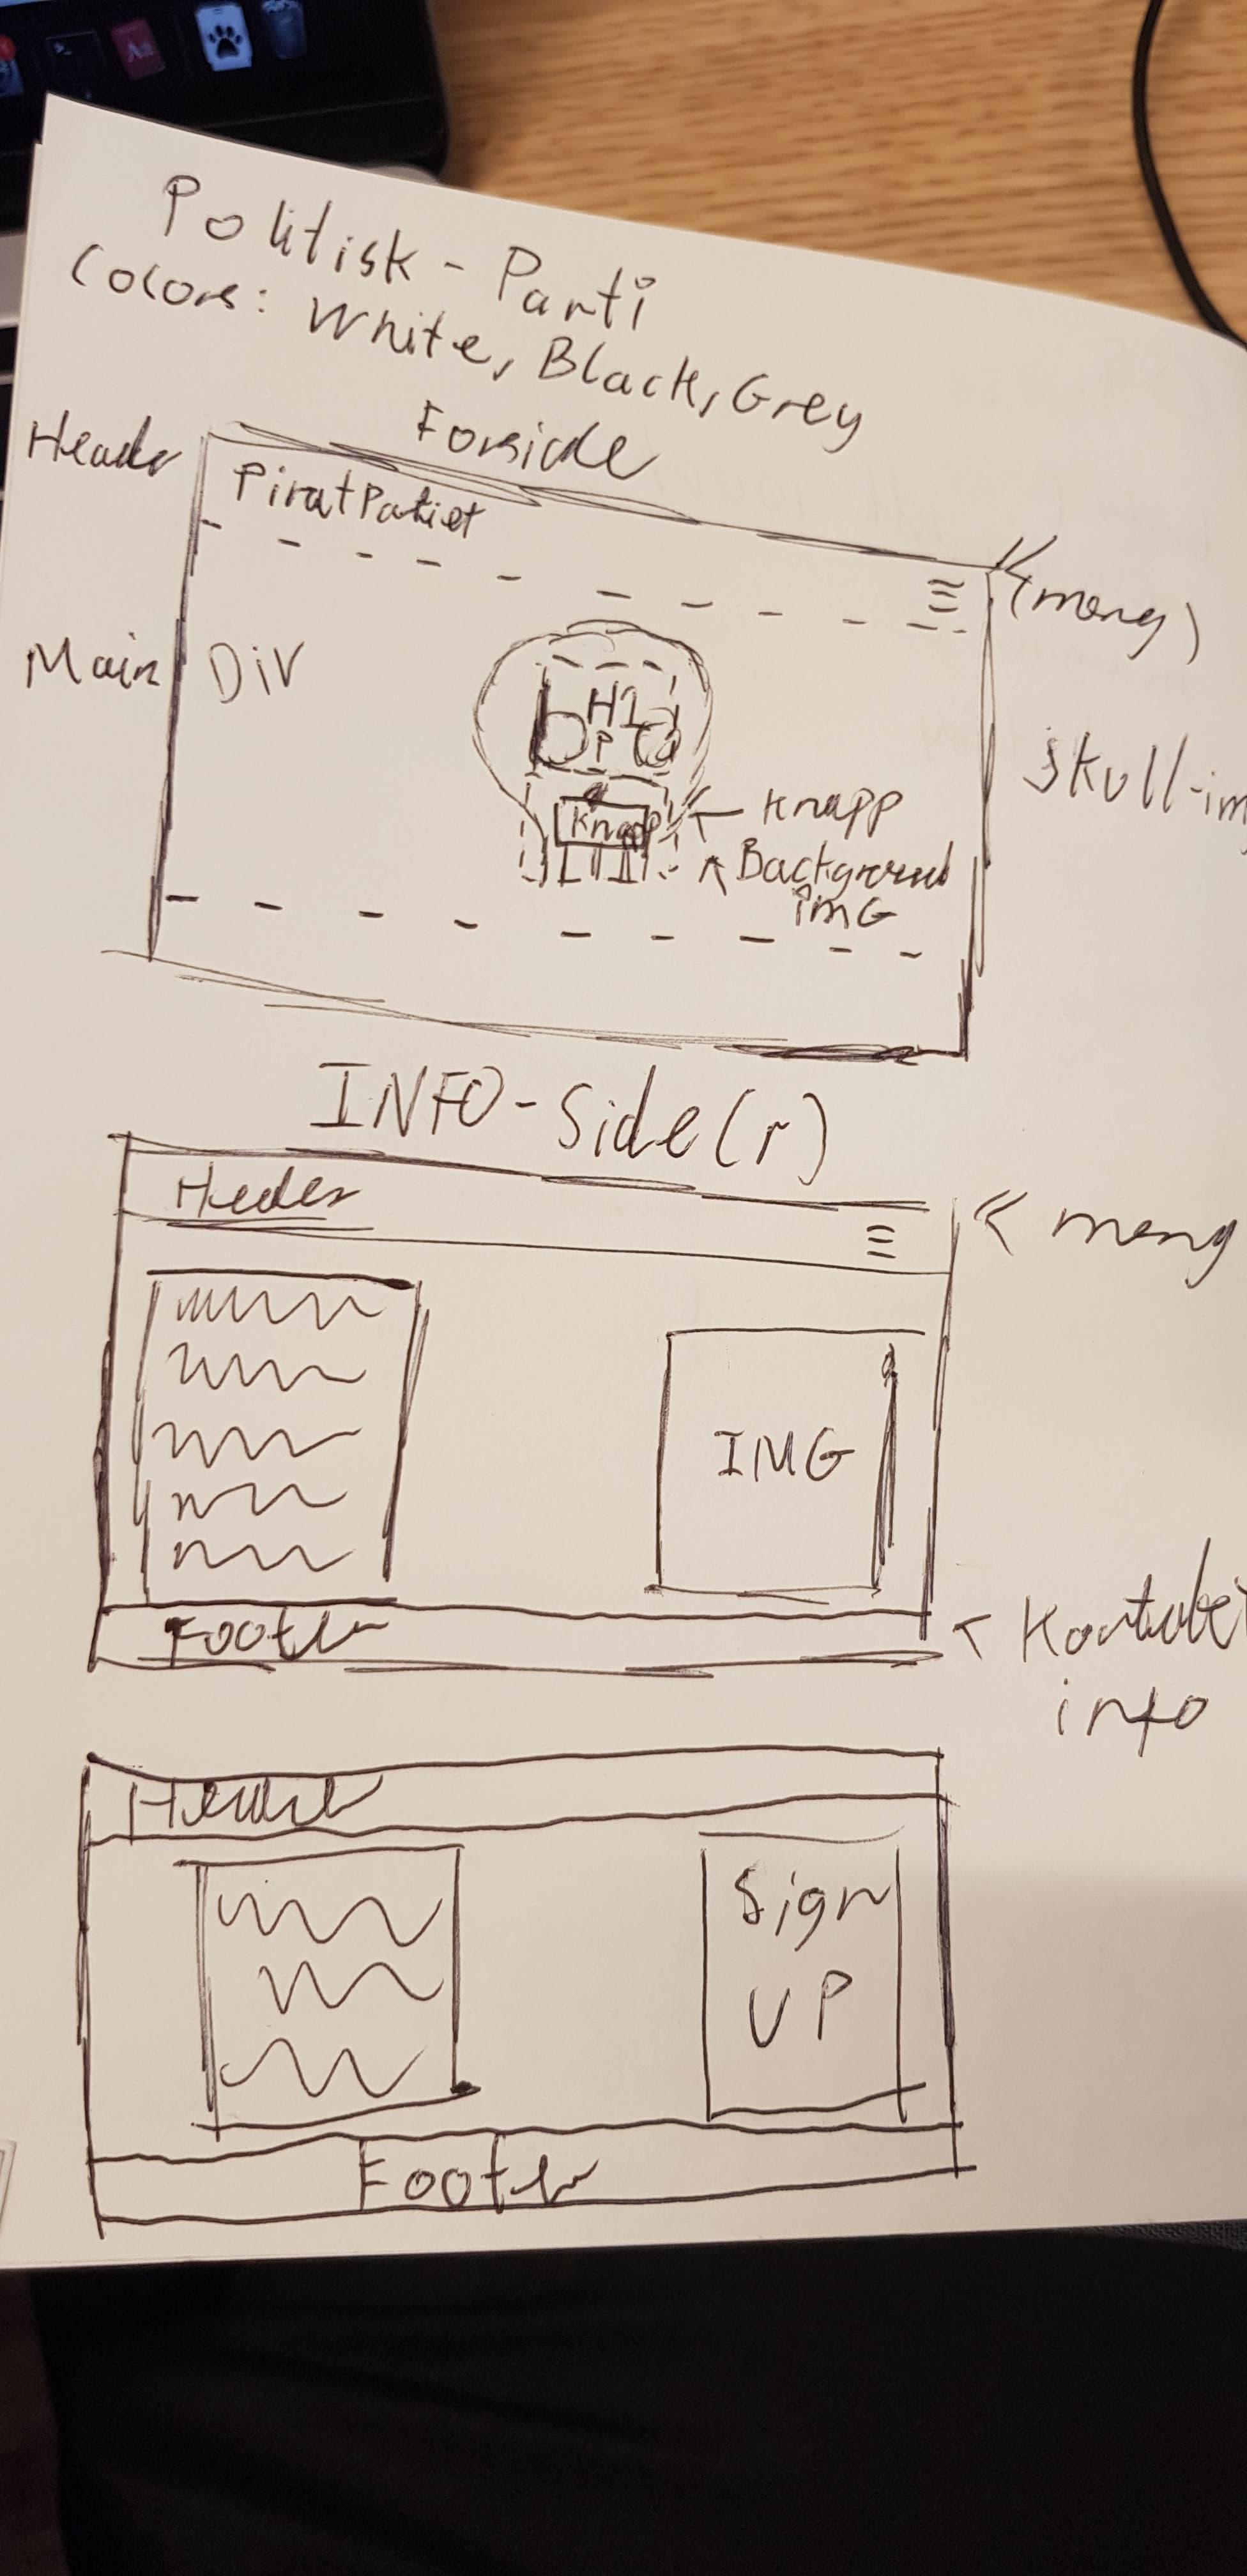 Politisk - Parti
Colors: White, Black, Grey
Forside
Header
PiratPatiet
(meny)
Main
Div
H1
P
skull-im
Knapp
Knapp
Background
imG
INFO-Side(r)
Header
meny
IMG
Footer
Kontakt
info
Header
Sign
UP
Footer